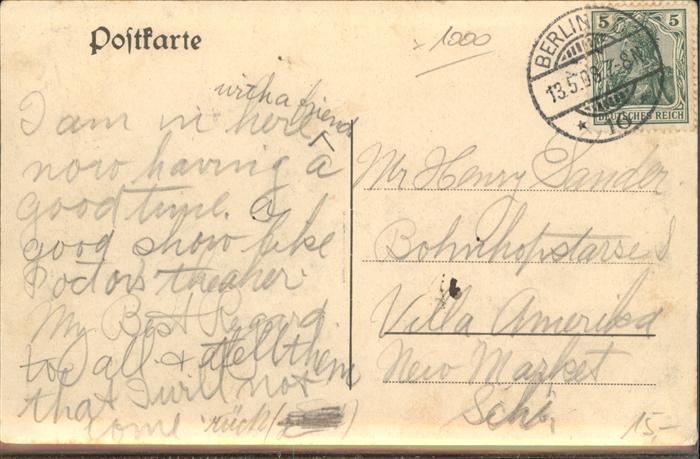 Postkarte
x 1000
BERLIN
13.5.08.7-8N.
* 10
5 5
DEUTSCHES REICH
with a friend
I am in here ^
now having a
good time. a
good show like
theater.
My Best Regard
to all & tell them
that I will not
come rück
Mr Henry Sander
Bohnhofstarse 1
Villa Amerika
New Market
Schl.
15,-